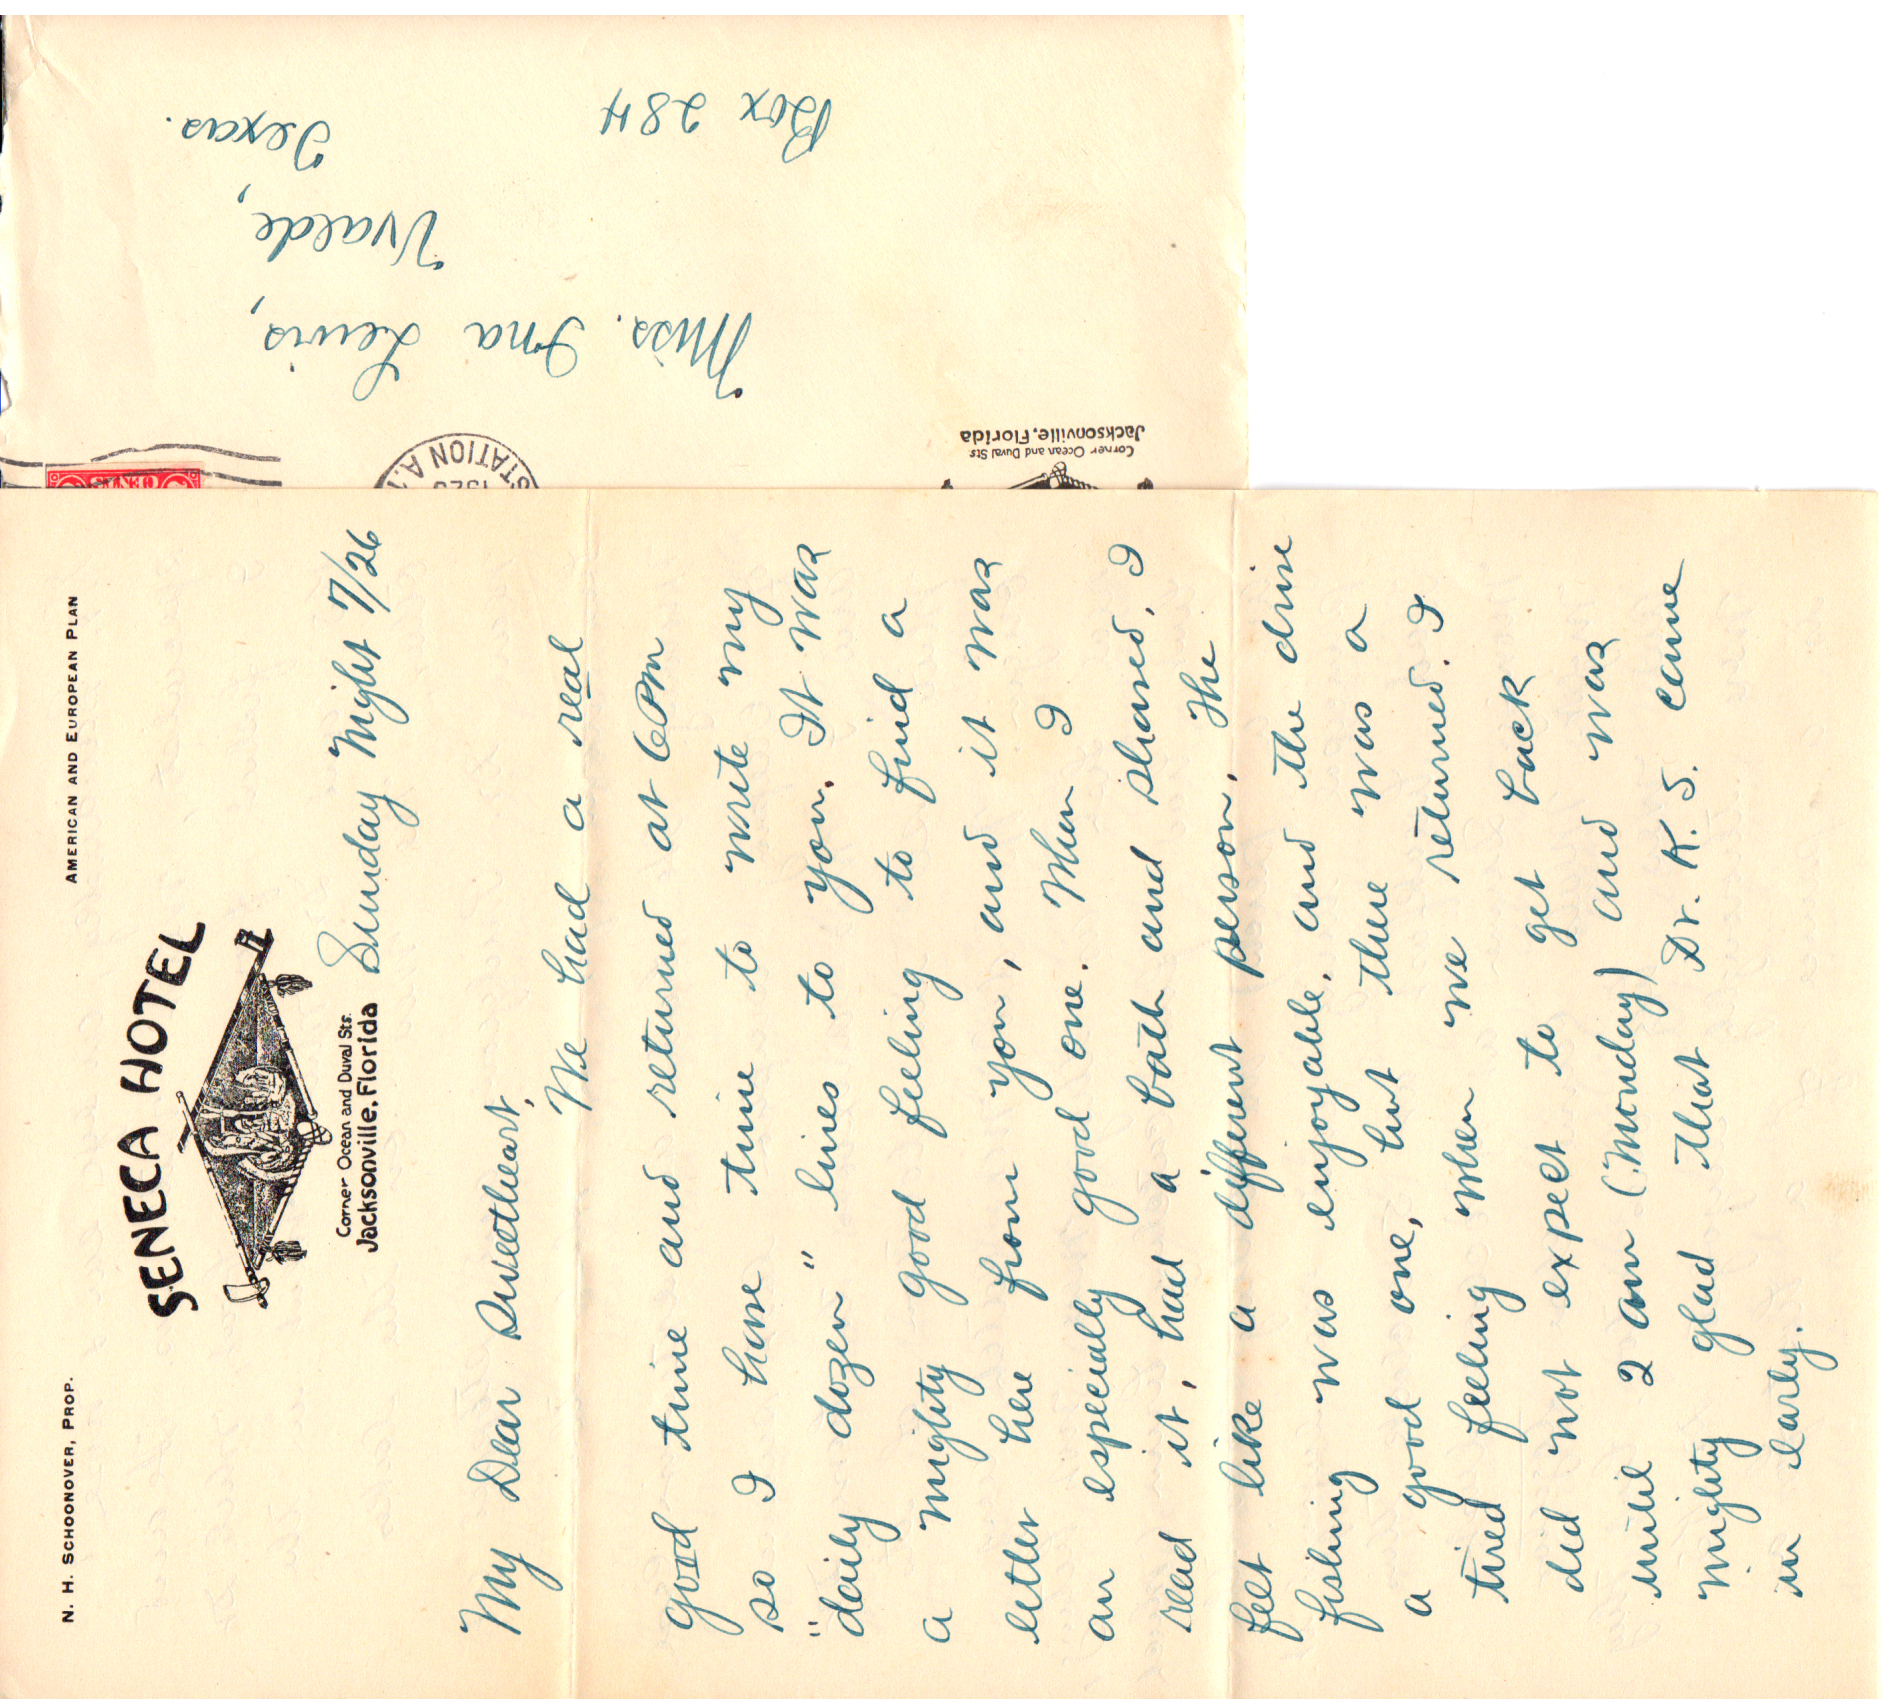 Miss. Ina Lewis,
Uvalde,
Texas.
Box 284
STATION A.
192
CENTS
Corner Ocean and Duval Sts
Jacksonville, Florida
N. H. SCHOONOVER, PROP.
AMERICAN AND EUROPEAN PLAN
SENECA HOTEL
Corner Ocean and Duval Sts.
Jacksonville, Florida
Sunday Night 7/26
My Dear Sweetheart,
We had a real
good time and returned at 6 Pm
so I have time to write my
"daily dozen" lines to you. It was
a mighty good feeling to find a
letter here from you, and it was
an especially good one. When I
read it, had a bath and shaved, I
felt like a different person. The
fishing was enjoyable, and the drive
a good one, but there was a
tired feeling when we returned. I
did not expect to get back
until 2 am (Monday) and was
mighty glad that Dr. K. S. came
in early.